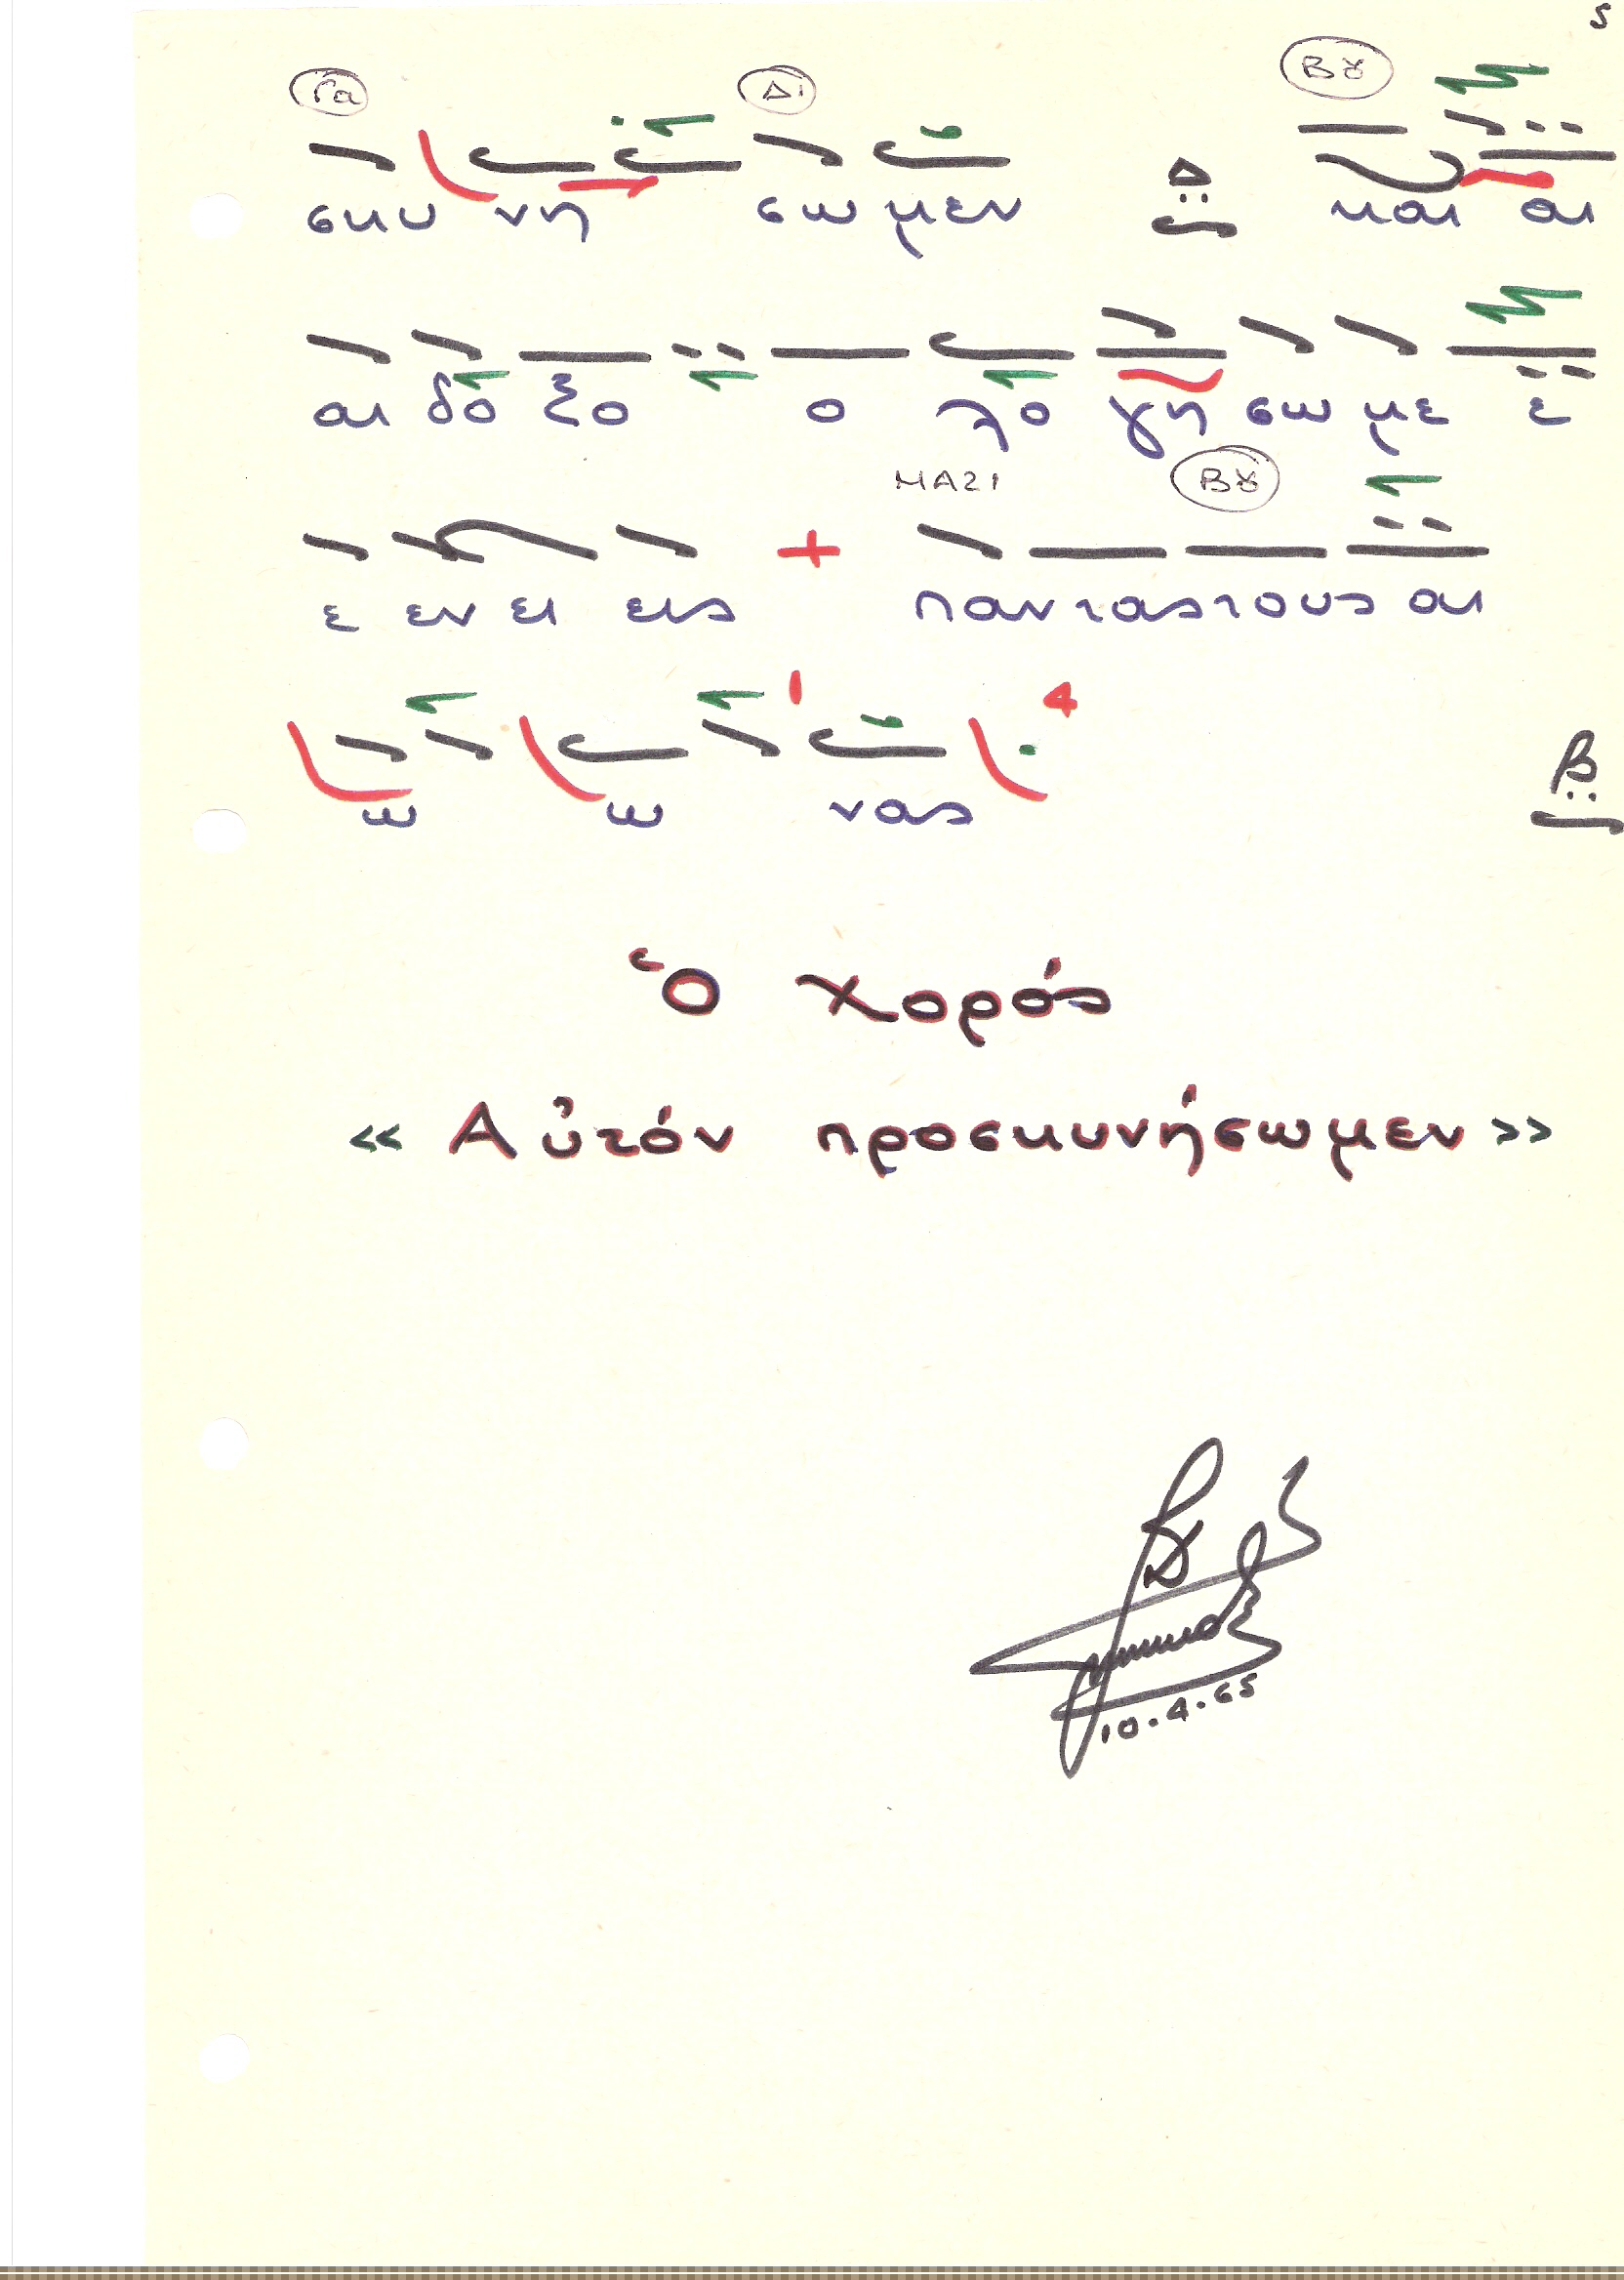 5
Γα Δι Βȣ
σκυ νη σω μεν Δ και αι
αι δο ξο ο λο γη σω με ε
ΜΑΖΙ Βȣ
ε εν ει εις + παντας τους αι
1 4
ω ω νας β
Ὁ Χορός
« Αὐτόν προσκυνήσωμεν »
10.4.65